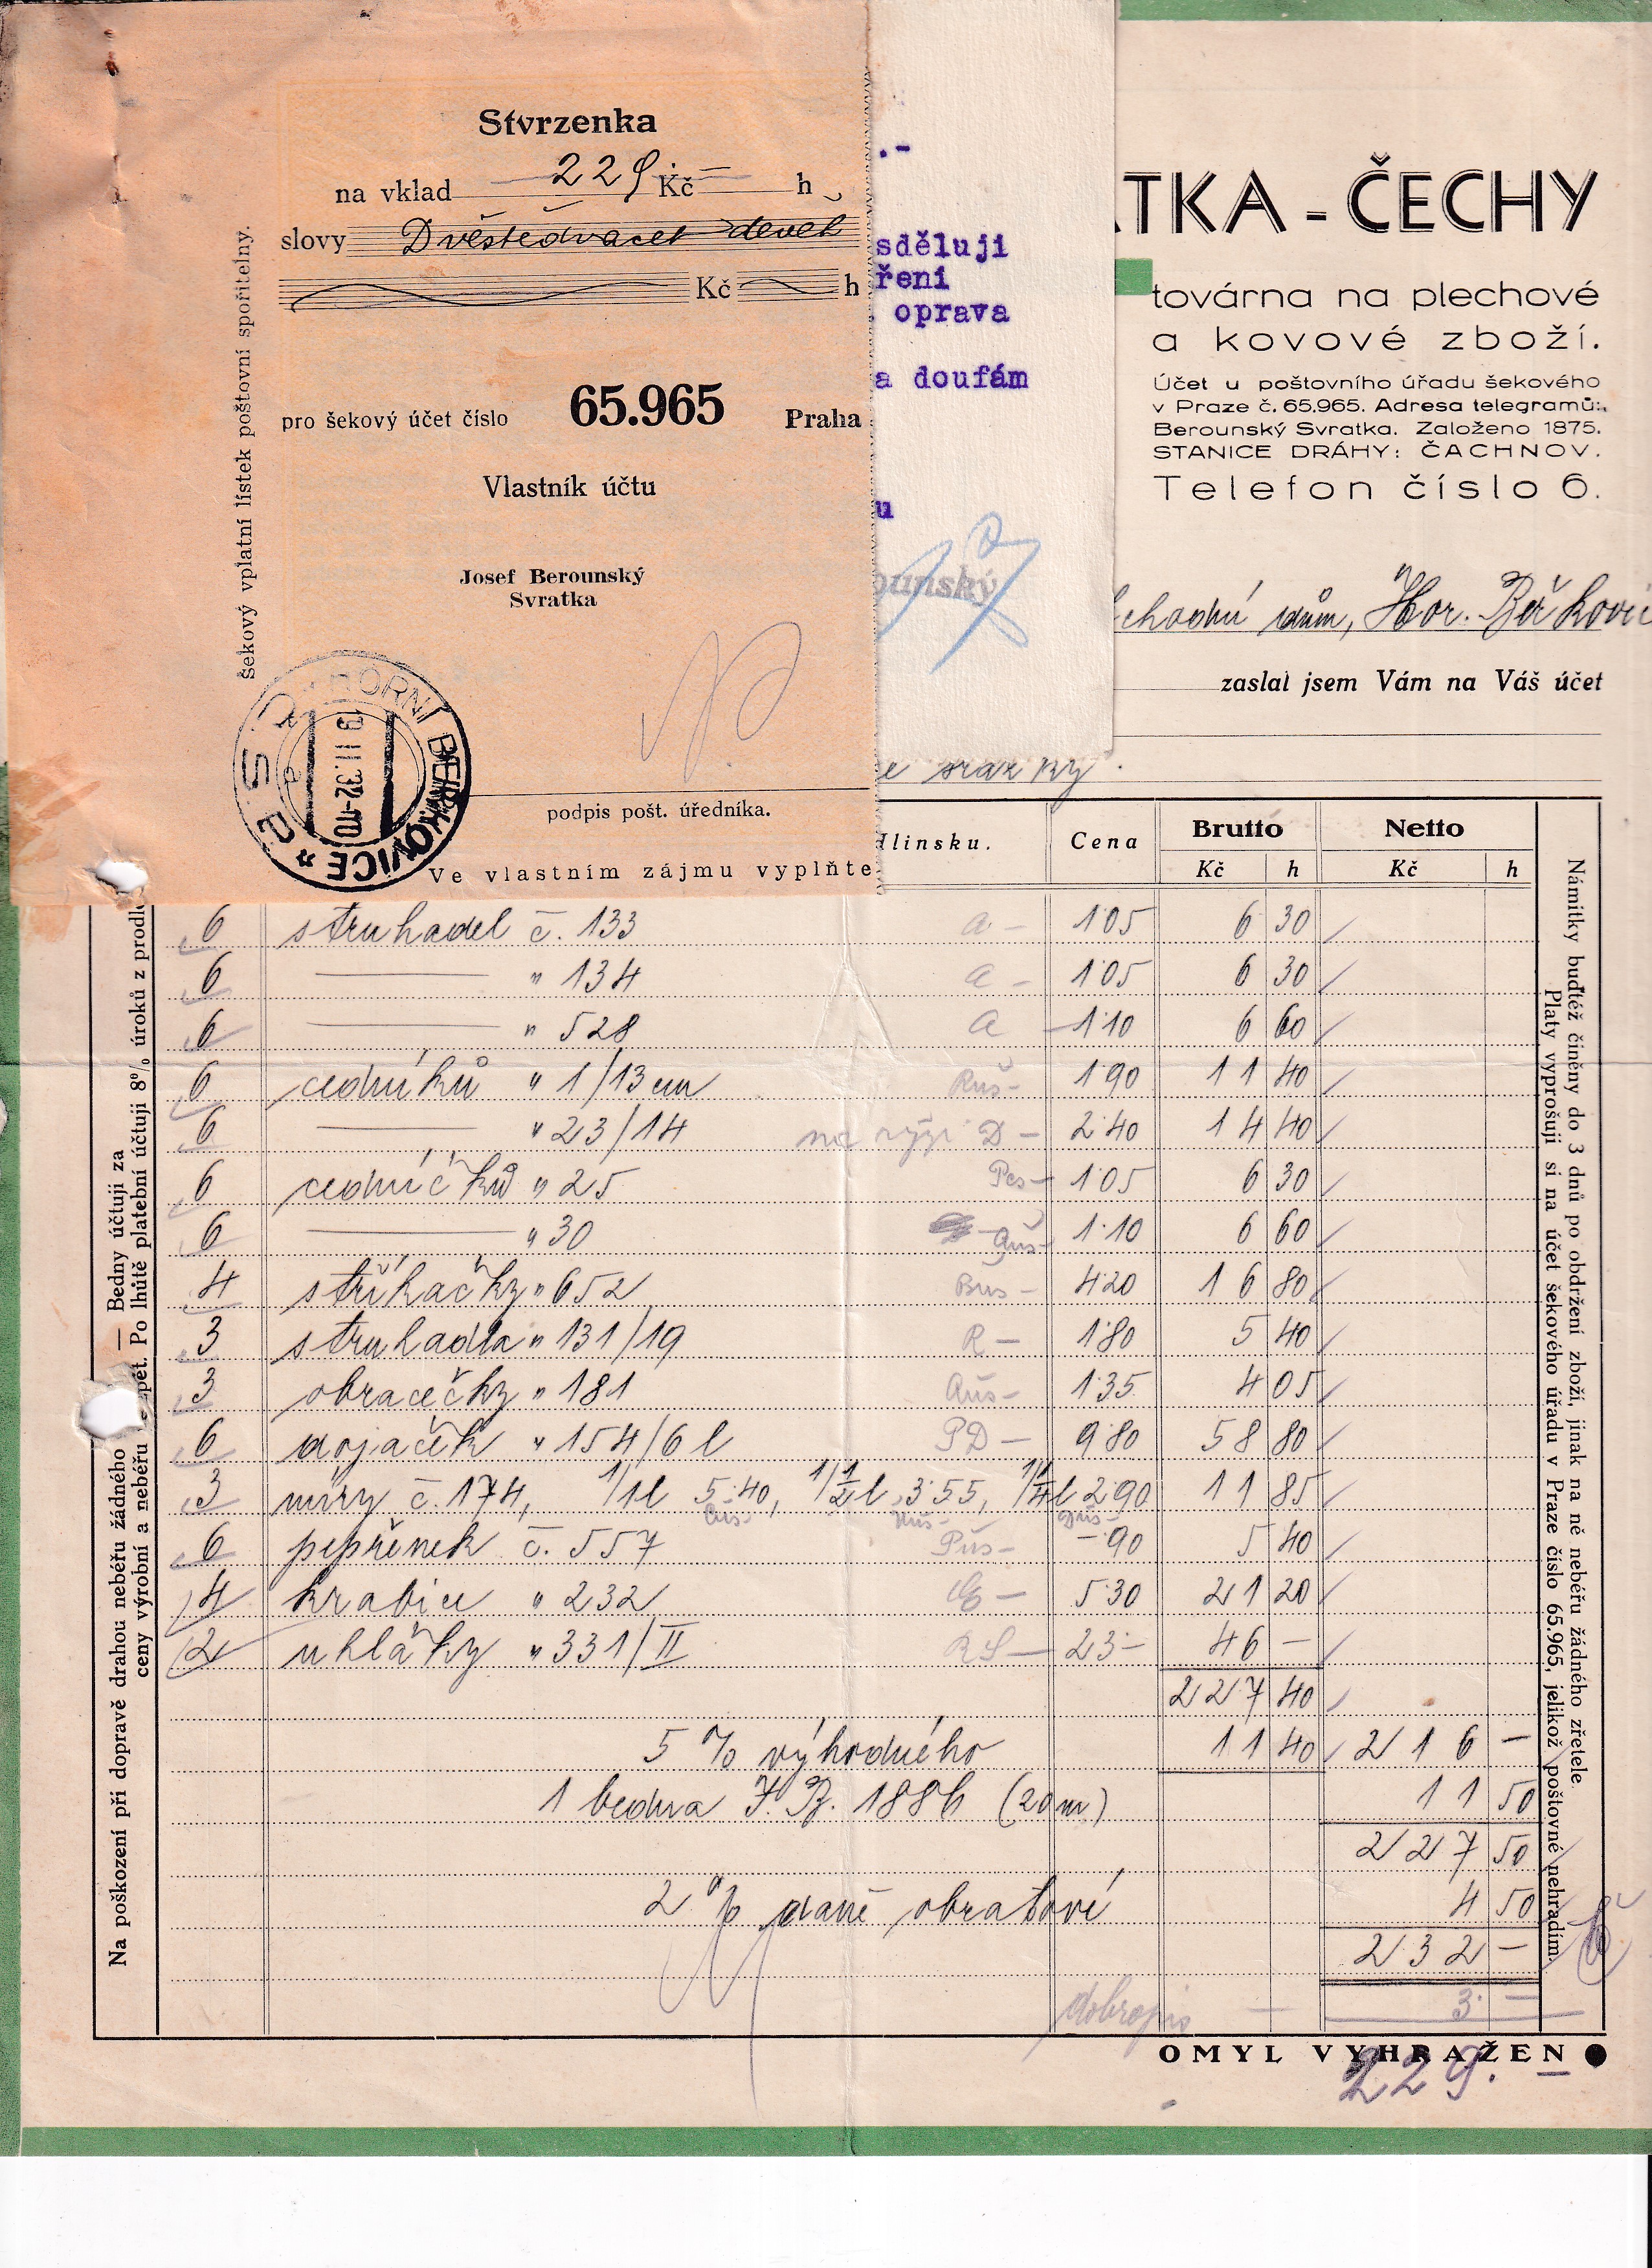 Stvrzenka
na vklad 229.— Kč h
slovy Dvěstědvacet devět
Kč h
pro šekový účet číslo 65.965 Praha
Vlastník účtu
Josef Berounský
Svratka
podpis pošt. úředníka.
Ve vlastním zájmu vyplňte
šekový vplatní lístek poštovní spořitelny.
HORNÍ BEŘKOVICE
9 II. 32-10
.-
sděluji
ření
oprava
a doufám
u
ounský
TKA - ČECHY
továrna na plechové
a kovové zboží.
Účet u poštovního úřadu šekového
v Praze č. 65.965. Adresa telegramů:
Berounský Svratka. Založeno 1875.
STANICE DRÁHY: ČACHNOV.
Telefon číslo 6.
chodní dům, Hor. Beřkovic
zaslal jsem Vám na Váš účet
srážky.
linsku. Cena Brutto Netto
Kč h Kč h
6 struhadel č. 133 a — 1·05 6 30
6 —— " 134 a — 1·05 6 30
6 —— " 528 a — 1·10 6 60
6 cedníků " 1/13 cm Ruš- 1·90 11 40
6 —— " 23/14 na rýži D — 2·40 14 40
6 cedníčků " 25 1·05 6 30
6 —— " 30 1·10 6 60
4 stříkačky " 652 Bus — 4·20 16 80
3 struhadla " 131/19 R — 1·80 5 40
3 obracečky " 181 Auš- 1·35 4 05
6 dojaček " 154/6 l PD — 9·80 58 80
3 míry č. 174, 1/1 l 5·40, 1/2 l 3·55, 1/4 l 2·90 11 85
6 pepřenek č. 557 Puš- —·90 5 40
4 krabice " 232 5·30 21 20
2 uhláky " 331/II RS — 23·— 46 —
227 40
5 % výhodného 11 40 216 —
1 bedna J. B. 1886 (20 m) 11 50
227 50
2 % daně obratové 4 50
232 —
dobropis — 3·—
OMYL VYHRAŽEN
229.—
Na poškození při dopravě drahou neběřu žádného
— Bedny účtuji za
ceny výrobní a neběřu
zpět. Po lhůtě platební účtuji 8% úroků z prodle
Námitky buďtéž činěny do 3 dnů po obdržení zboží, jinak na ně neběřu žádného zřetele
Platy vyprošuji si na účet šekového úřadu v Praze číslo 65.965, jelikož poštovné nehradím.